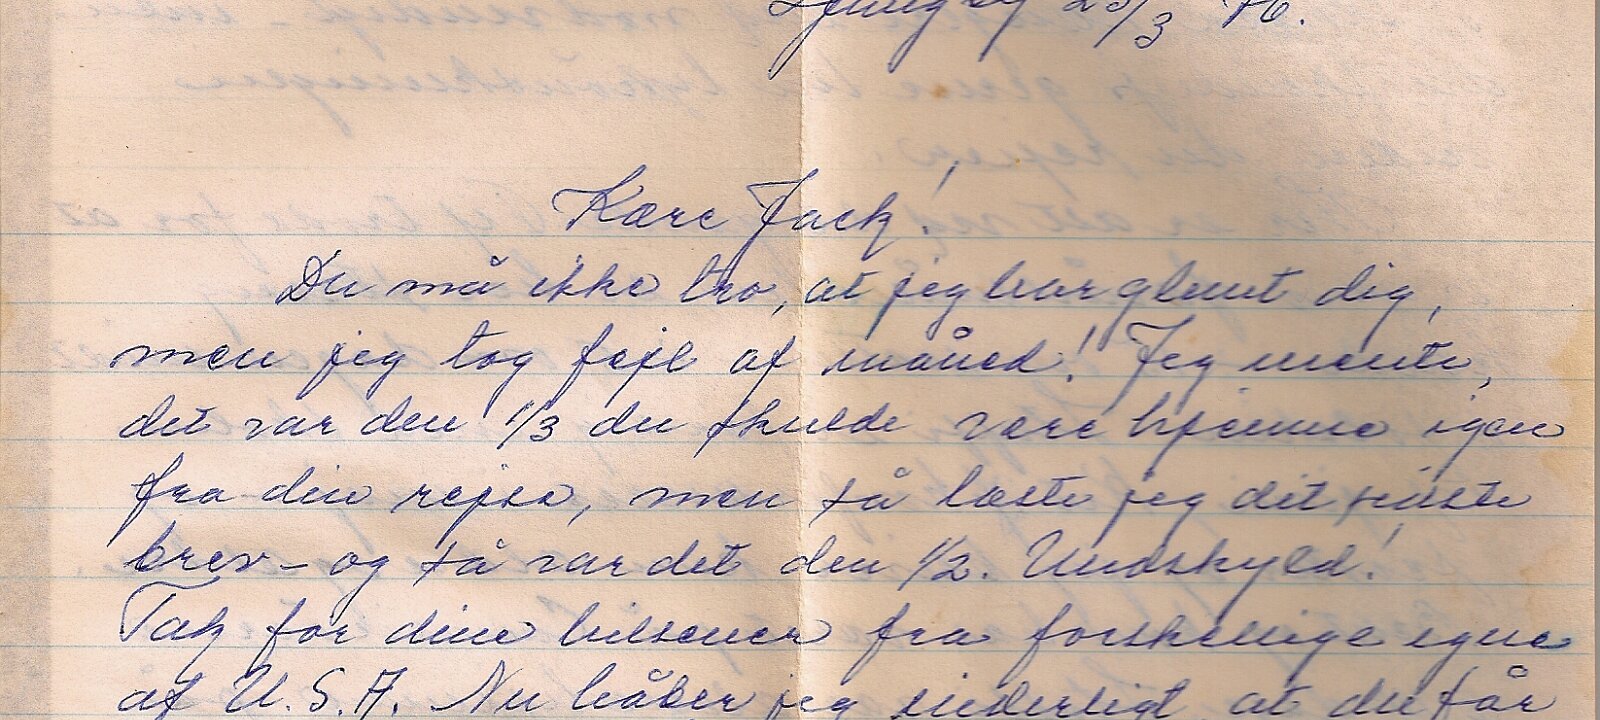 Ljungby 25/3 76.
Kære Jack!
Du må ikke tro, at jeg har glemt dig,
men jeg tog fejl af måned! Jeg mente,
det var den 1/3 du skulde være hjemme igen
fra din rejse, men så læste jeg dit sidste
brev – og så var det den 1/2. Undskyld!
Tak for dine hilsener fra forskellige egne
af U.S.A. Nu håber jeg inderligt, at du får